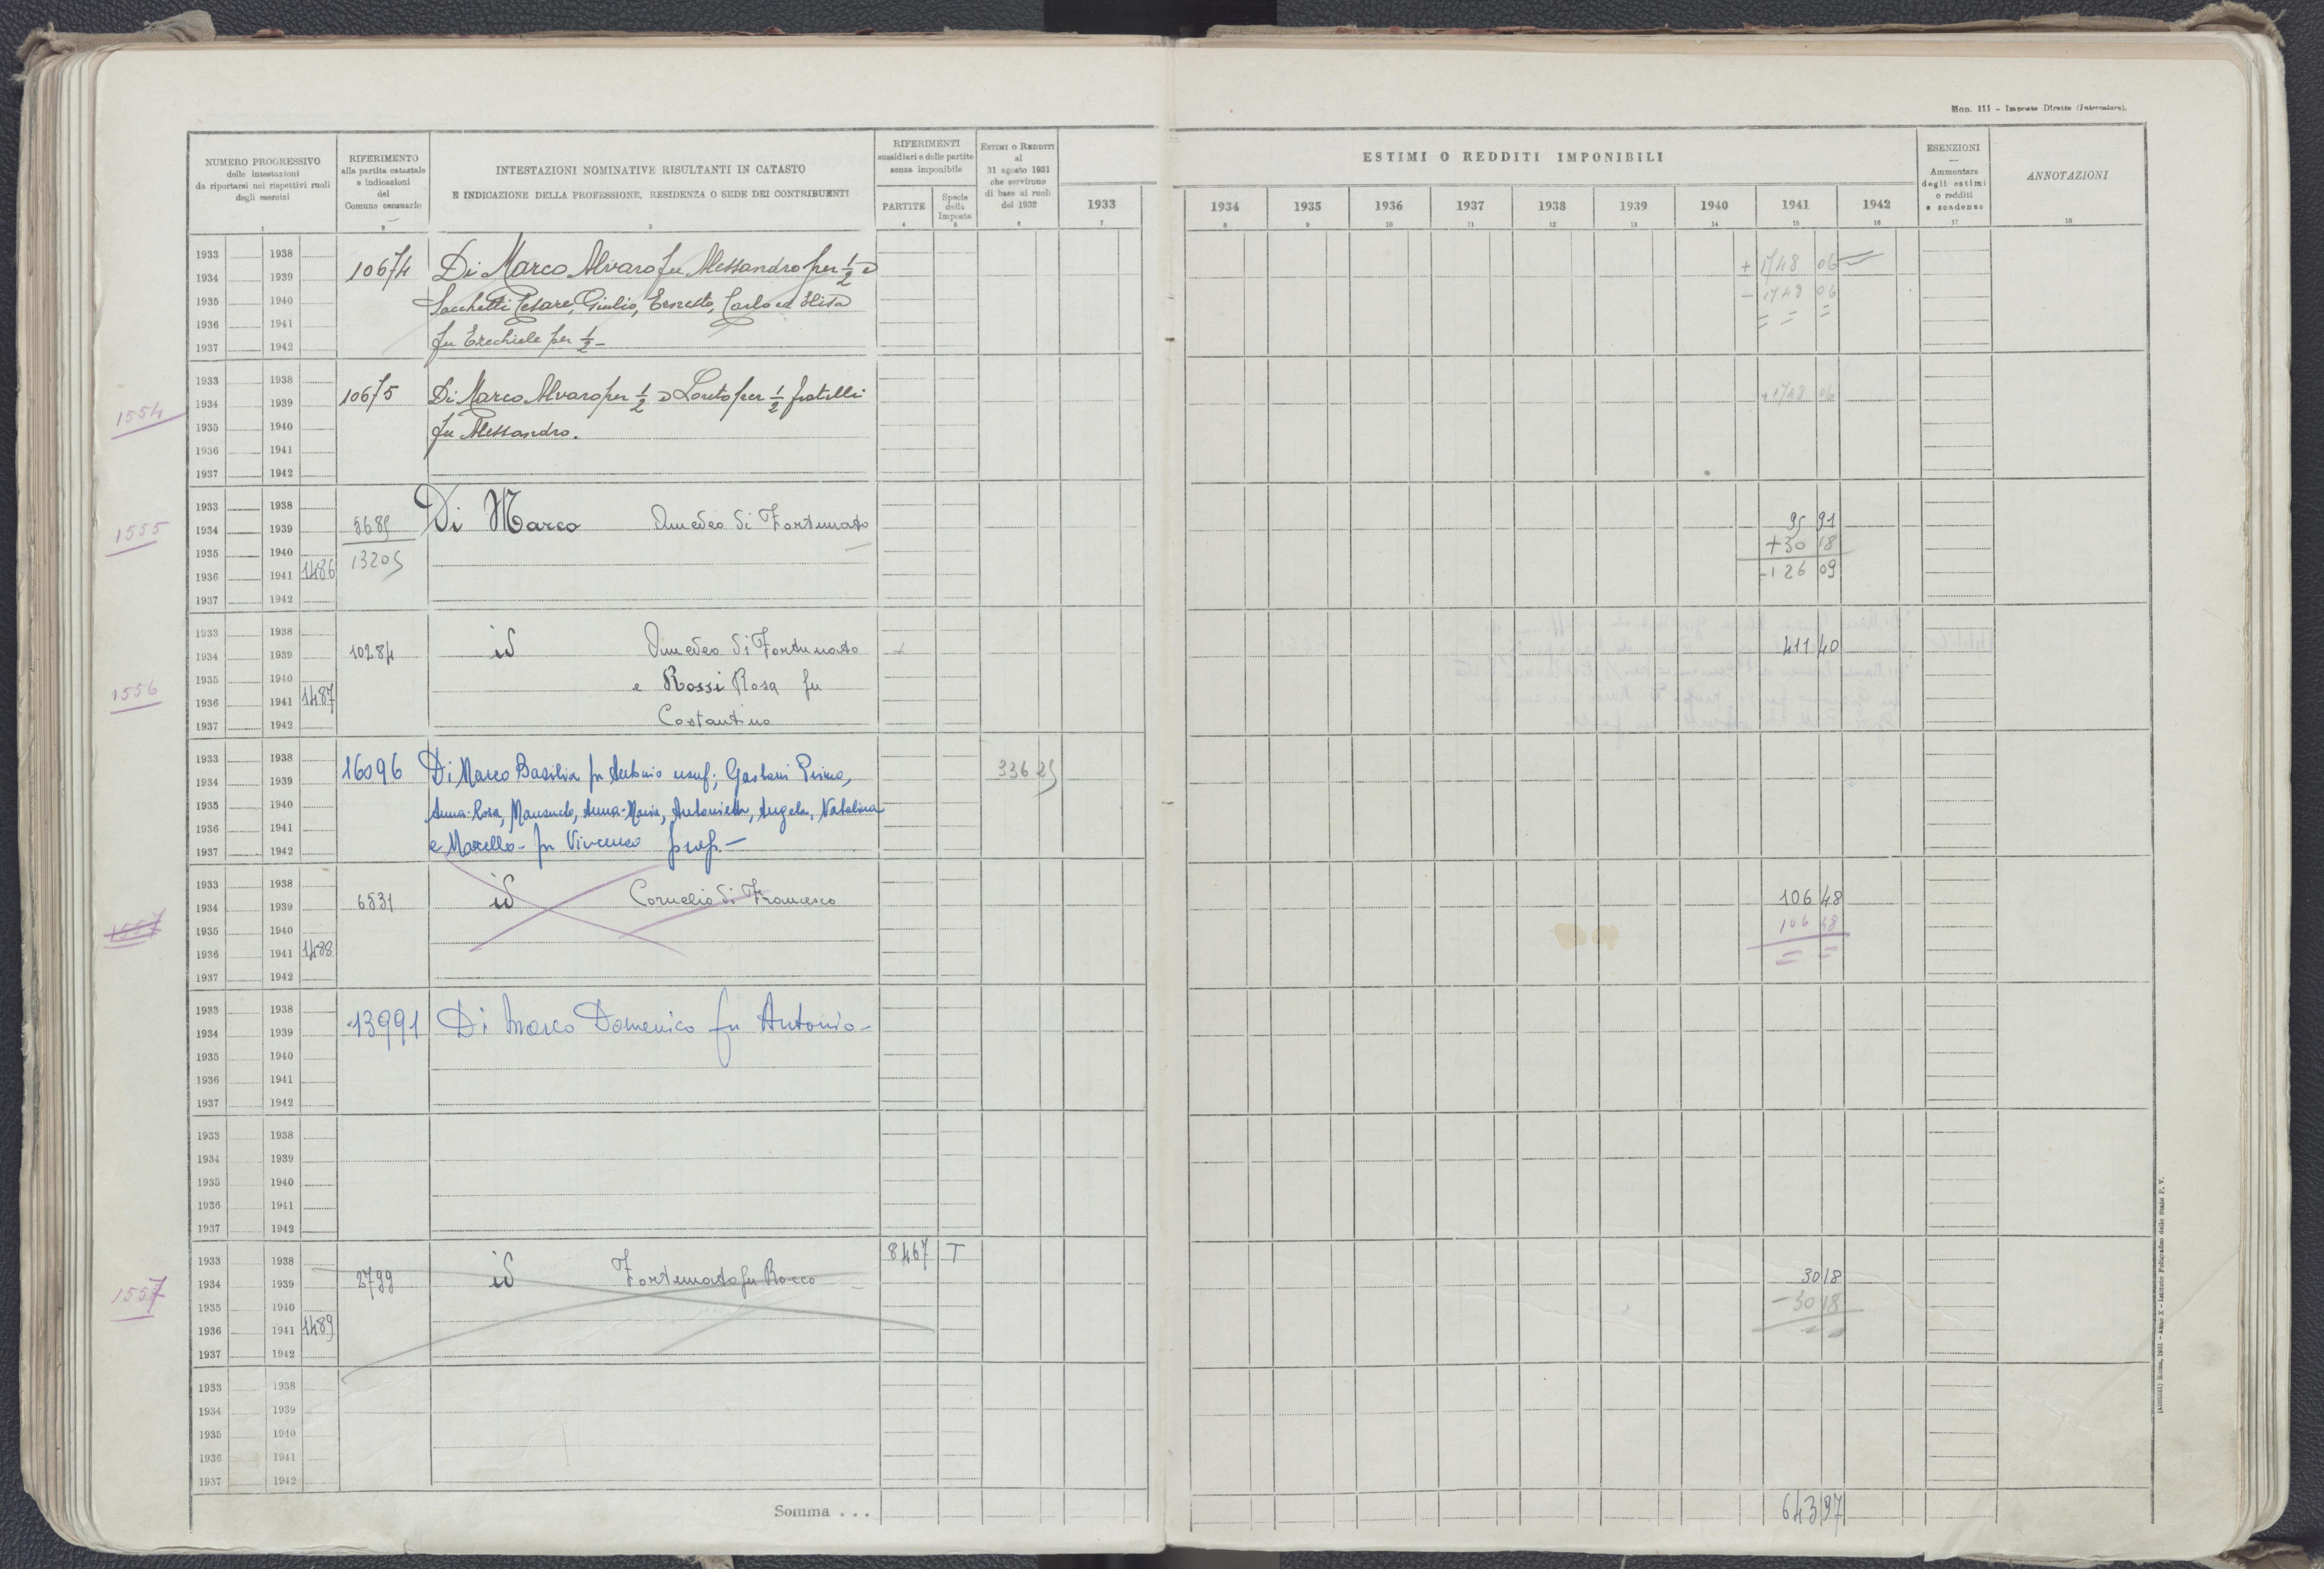 Mod. 111 - Imposte Dirette (Intercalare).
NUMERO PROGRESSIVO
delle intestazioni
da riportarsi nei rispettivi ruoli
degli esercizi
1
RIFERIMENTO
alla partita catastale
e indicazioni
del
Comune censuario
2
INTESTAZIONI NOMINATIVE RISULTANTI IN CATASTO
E INDICAZIONE DELLA PROFESSIONE, RESIDENZA O SEDE DEI CONTRIBUENTI
3
RIFERIMENTI
sussidiari e delle partite
senza imponibile
PARTITE
4
Specie
della
Imposta
5
ESTIMI O REDDITI
al
31 agosto 1931
che servirono
di base ai ruoli
del 1932
6
ESTIMI O REDDITI IMPONIBILI
1933 1934 1935 1936 1937 1938 1939 1940 1941 1942
7 8 9 10 11 12 13 14 15 16
ESENZIONI
Ammontare
degli estimi
o redditi
e scadenze
17
ANNOTAZIONI
18
1933 1938
1934 1939 10674 Di Marco Alvaro fu Alessandro per 1/2 e + 1748 06
1935 1940 Sacchetti Cesare, Giulio, Ernesto, Carlo ed Elisa - 1748 06
1936 1941 = = =
1937 1942 fu Ezechiele per 1/2 -
1933 1938
1554 1934 1939 10675 Di Marco Alvaro per 1/2 e Loreto per 1/2 fratelli + 1748 06
1935 1940 fu Alessandro.
1936 1941
1937 1942
1933 1938
1555 1934 1939 8689 Di Marco Amedeo di Fortunato 95 91
1935 1940 13205 + 30 18
1936 1941 1486 - 126 09
1937 1942
1933 1938
1934 1939 10284 id Amedeo di Fortunato 411 40
1935 1940 e Rossi Rosa fu
1556 1936 1941 1487
1937 1942 Costantino
1933 1938
1934 1939 16096 Di Marco Basilia fu Antonio usuf; Gastani Primo, 336 25
1935 1940 Anna-Rosa, Mansueto, Anna-Maria, Antonietta, Angela, Natalina
1936 1941
1937 1942 e Marcello - fu Vincenzo prop. -
1933 1938
1934 1939 6831 id Cornelio di Francesco 106 48
1557 1935 1940 106 48
1936 1941 1488 = =
1937 1942
1933 1938
1934 1939 13991 Di Marco Domenico fu Antonio -
1935 1940
1936 1941
1937 1942
1933 1938
1934 1939
1935 1940
1936 1941
1937 1942
1933 1938 8467 T
1934 1939 2799 id Fortunato fu Rocco 30 18
1557 1935 1940 - 30 18
1936 1941 1489
1937 1942
1933 1938
1934 1939
1935 1940
1936 1941
1937 1942
Somma . . . 643 97
Roma, 1931 - Anno X - Istituto Poligrafico dello Stato P. V.